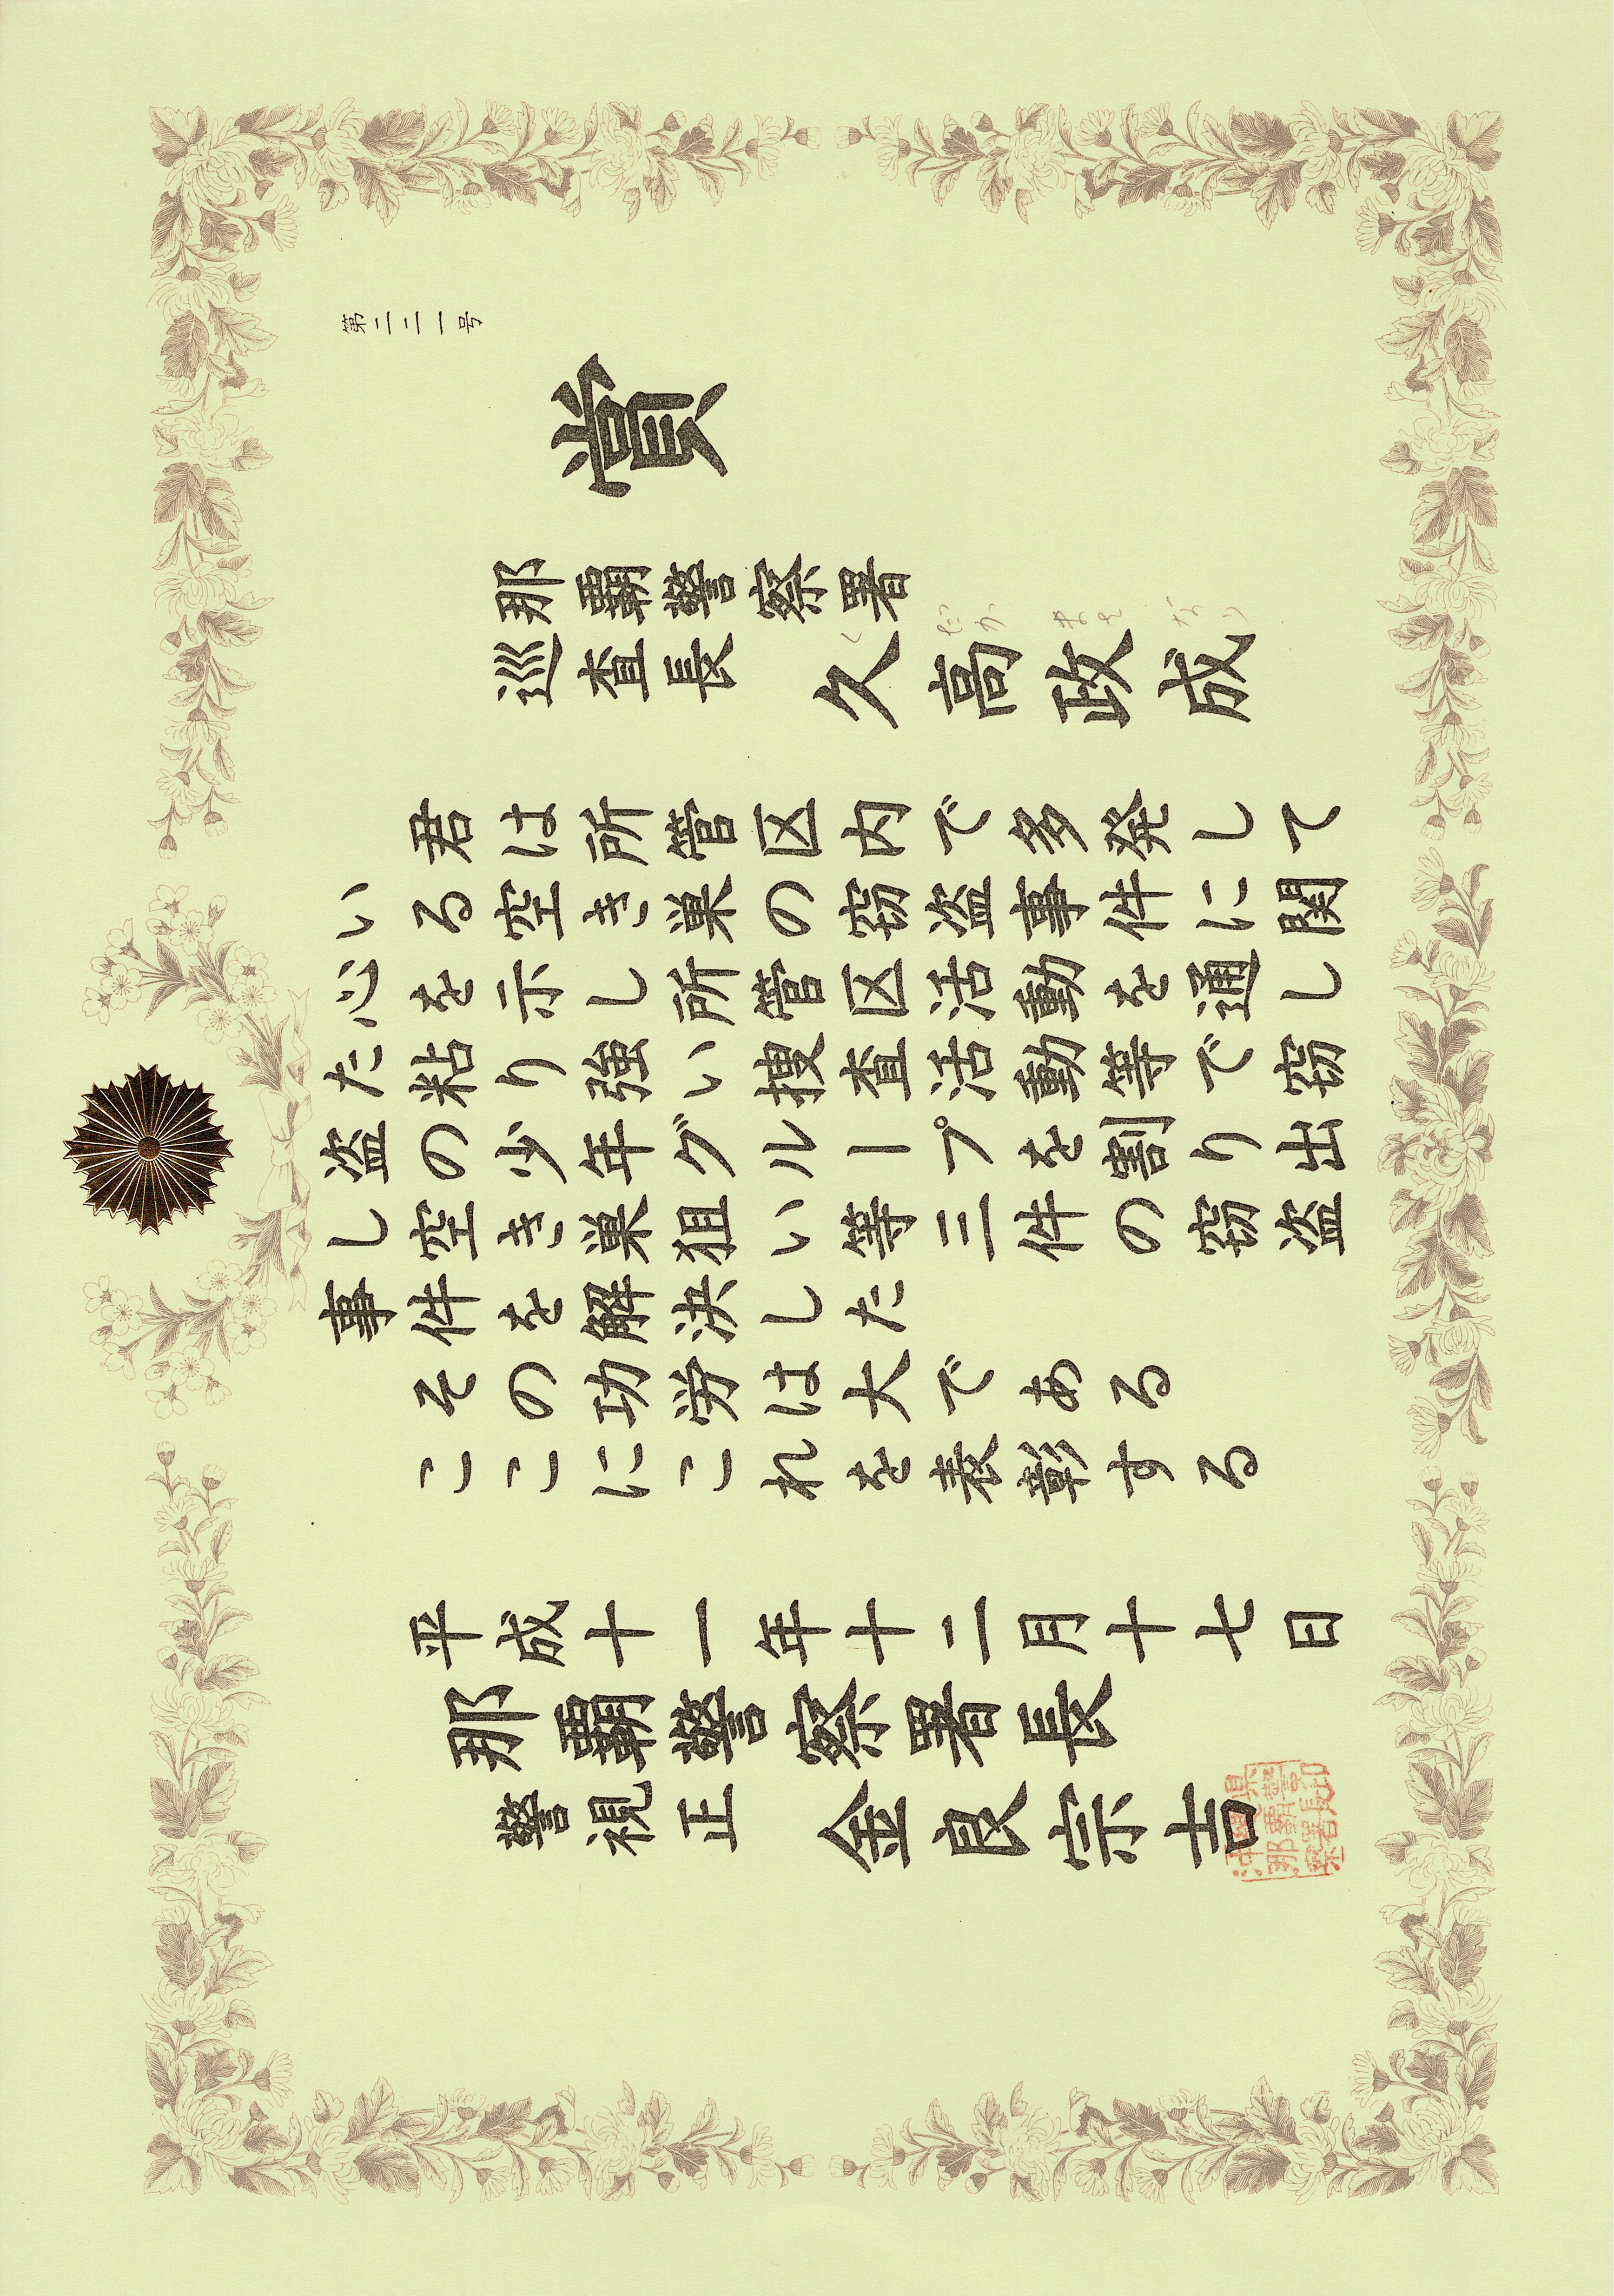 第二二一号
賞
那覇警察署
巡査長 久高政成
く だか まさ なり
君は所管区内で多発して
いる空き巣の窃盗事件に関
心を示し所管区活動を通し
た粘り強い捜査活動等で窃
盗の少年グループを割り出
し空き巣狙い等三件の窃盗
事件を解決した
その功労は大である
ここにこれを表彰する
平成十一年十二月十七日
那覇警察署長
警視正 金良宗吉
沖縄県
那覇警
察署長印